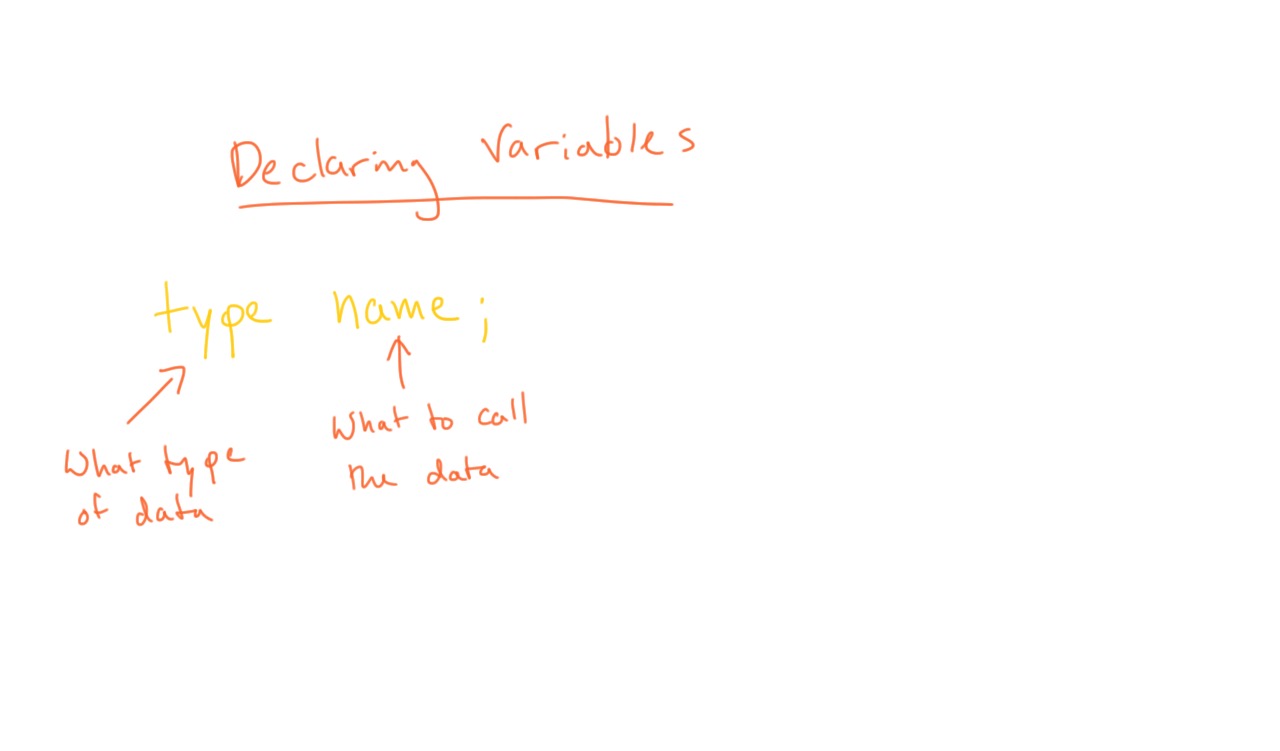 Declaring Variables
type name;
What type
of data
What to call
the data